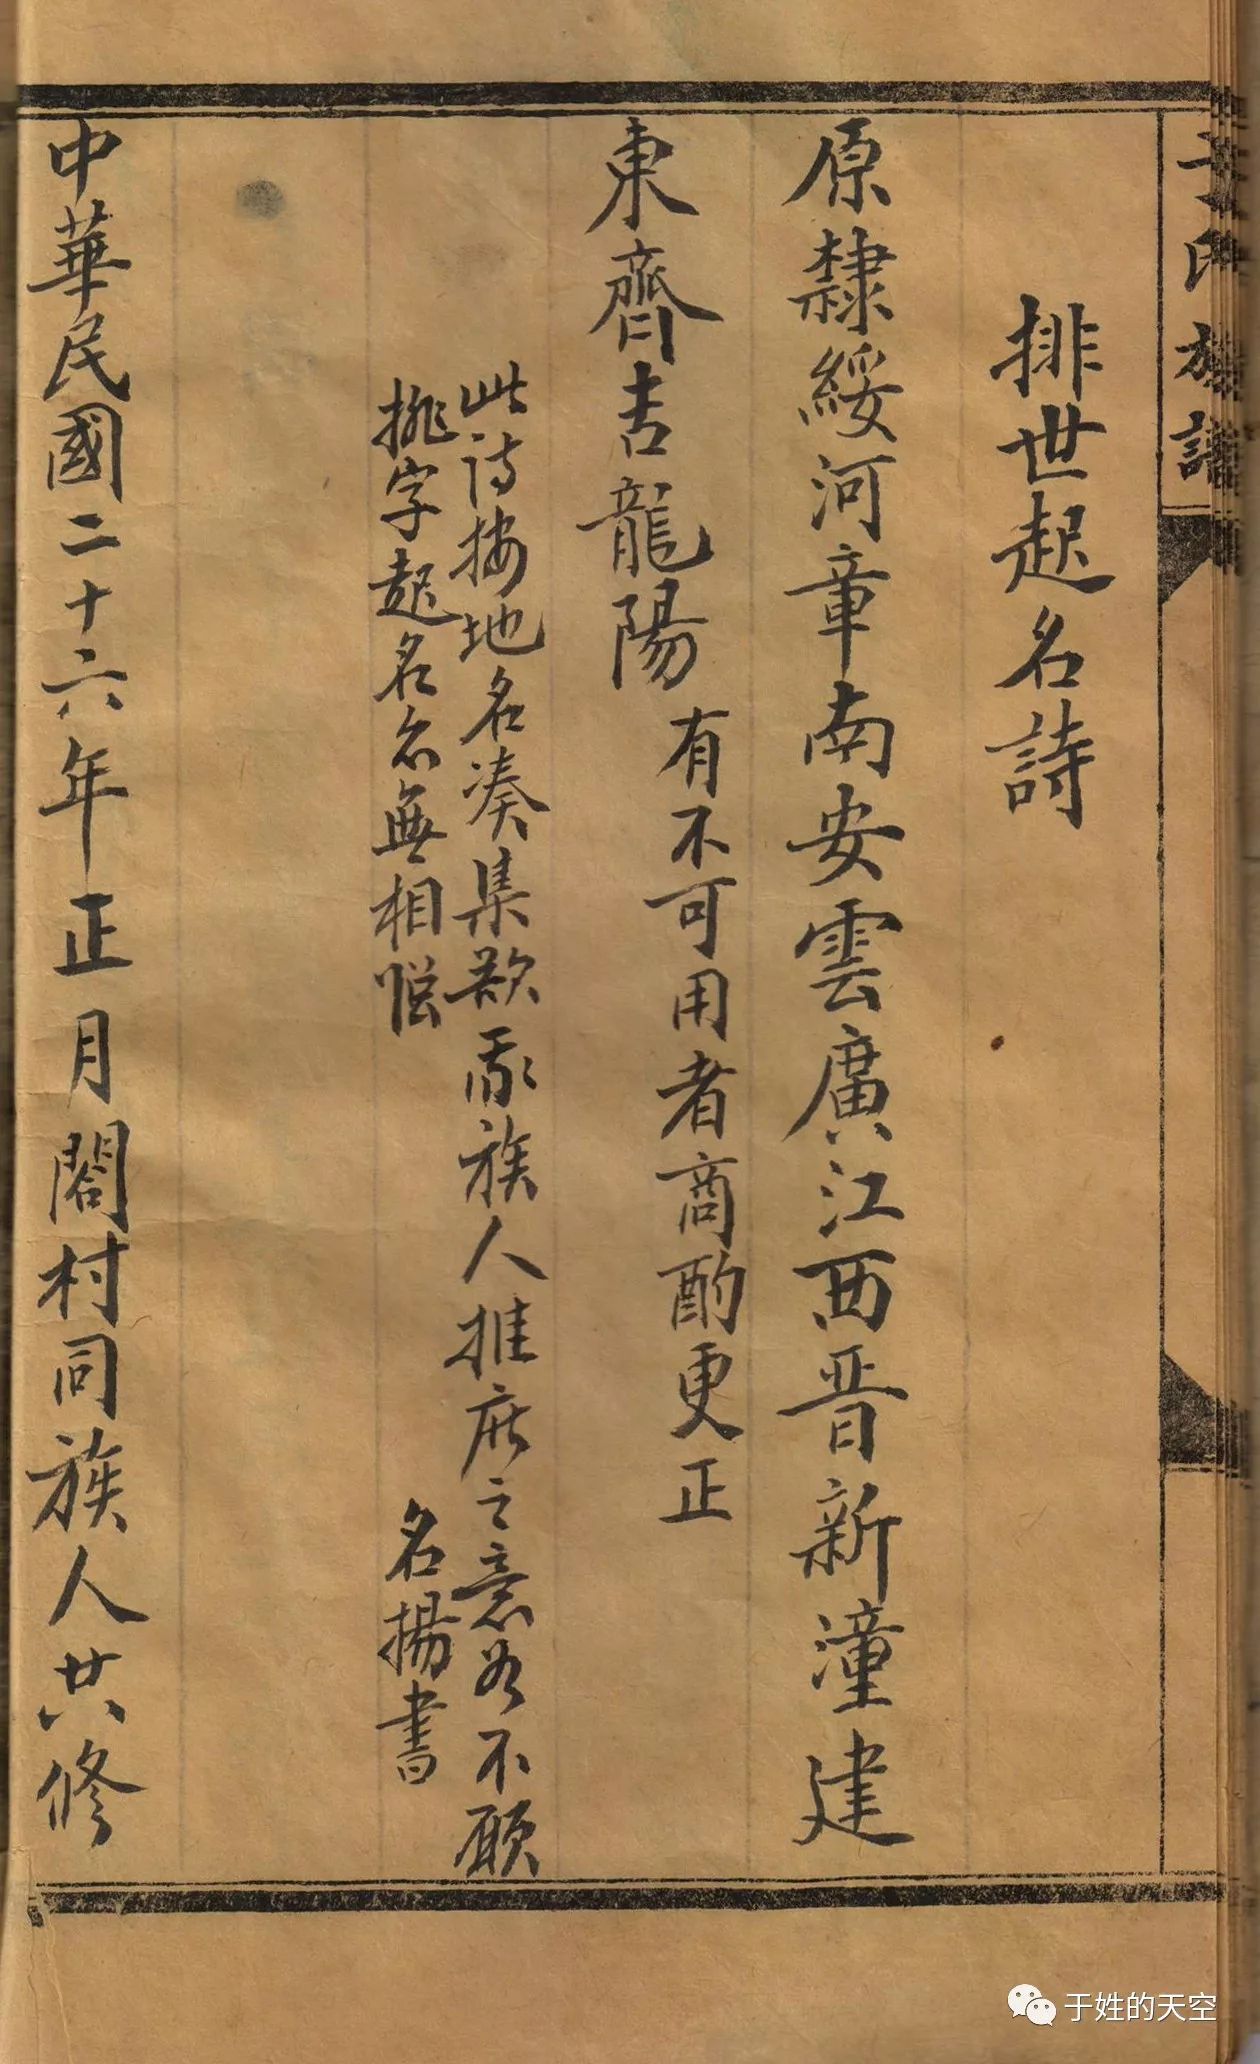 于氏族譜
排世起名詩
原隸綏河章南安雲廣江西晋新潼建
東齊吉龍陽 有不可用者商酌更正
此詩按地名湊集承族人推庇之意若不願
挑字起名亦無相 名揚書
中華民國二十六年正月閤村同族人共修
于姓的天空